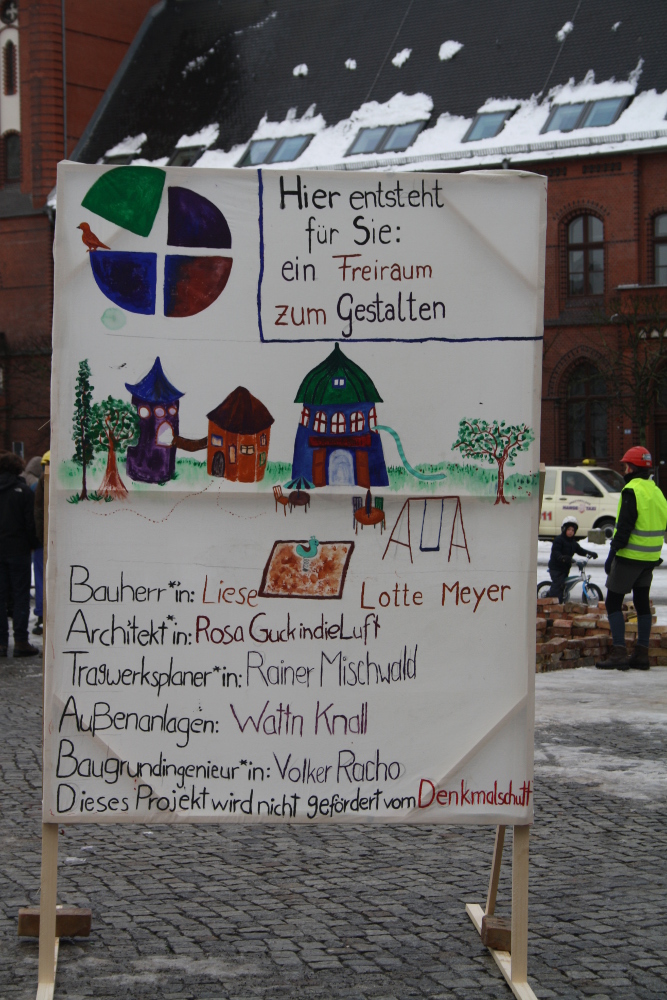 Hier entsteht
für Sie:
ein Freiraum
zum Gestalten
Bauherr*in: Liese Lotte Meyer
Architekt*in: Rosa GuckindieLuft
Tragwerksplaner*in: Rainer Mischwald
Außenanlagen: Wattn Knall
Baugrundingenieur*in: Volker Racho
Dieses Projekt wird nicht gefördert vom Denkmalschutt
11